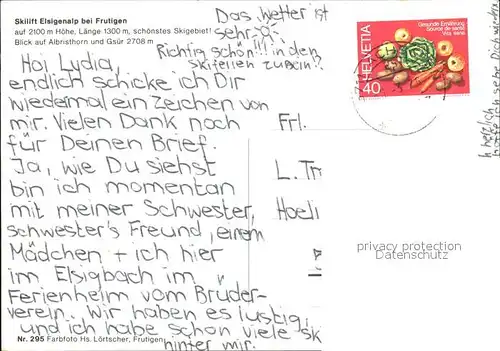 Skilift Elsigenalp bei Frutigen
auf 2100 m Höhe, Länge 1300 m, schönstes Skigebiet!
Blick auf Albristhorn und Gsür 2708 m
Das Wetter ist
sehr
Richtig schön!!! in den
skiferien zu sein?
Hoi Lydia,
endlich schicke ich Dir
wiedemal ein Zeichen von
mir. Vielen Dank noch
für Deinen Brief.
Ja, wie Du siehst
bin ich momentan
mit meiner Schwester,
schwester's Freund, einem
Mädchen + ich hier
im Elsigbach im
Ferienheim vom Brüder-
verein. Wir haben es lustig,
und ich habe schon viele sk
hinter mir.
Nr. 295 Farbfoto Hs. Lörtscher, Frutigen
Gesunde Ernährung
Source de santé
Vita sana
HELVETIA
40
Frl.
L. Tr
Hoeli
herzlich
privacy protection
Datenschutz